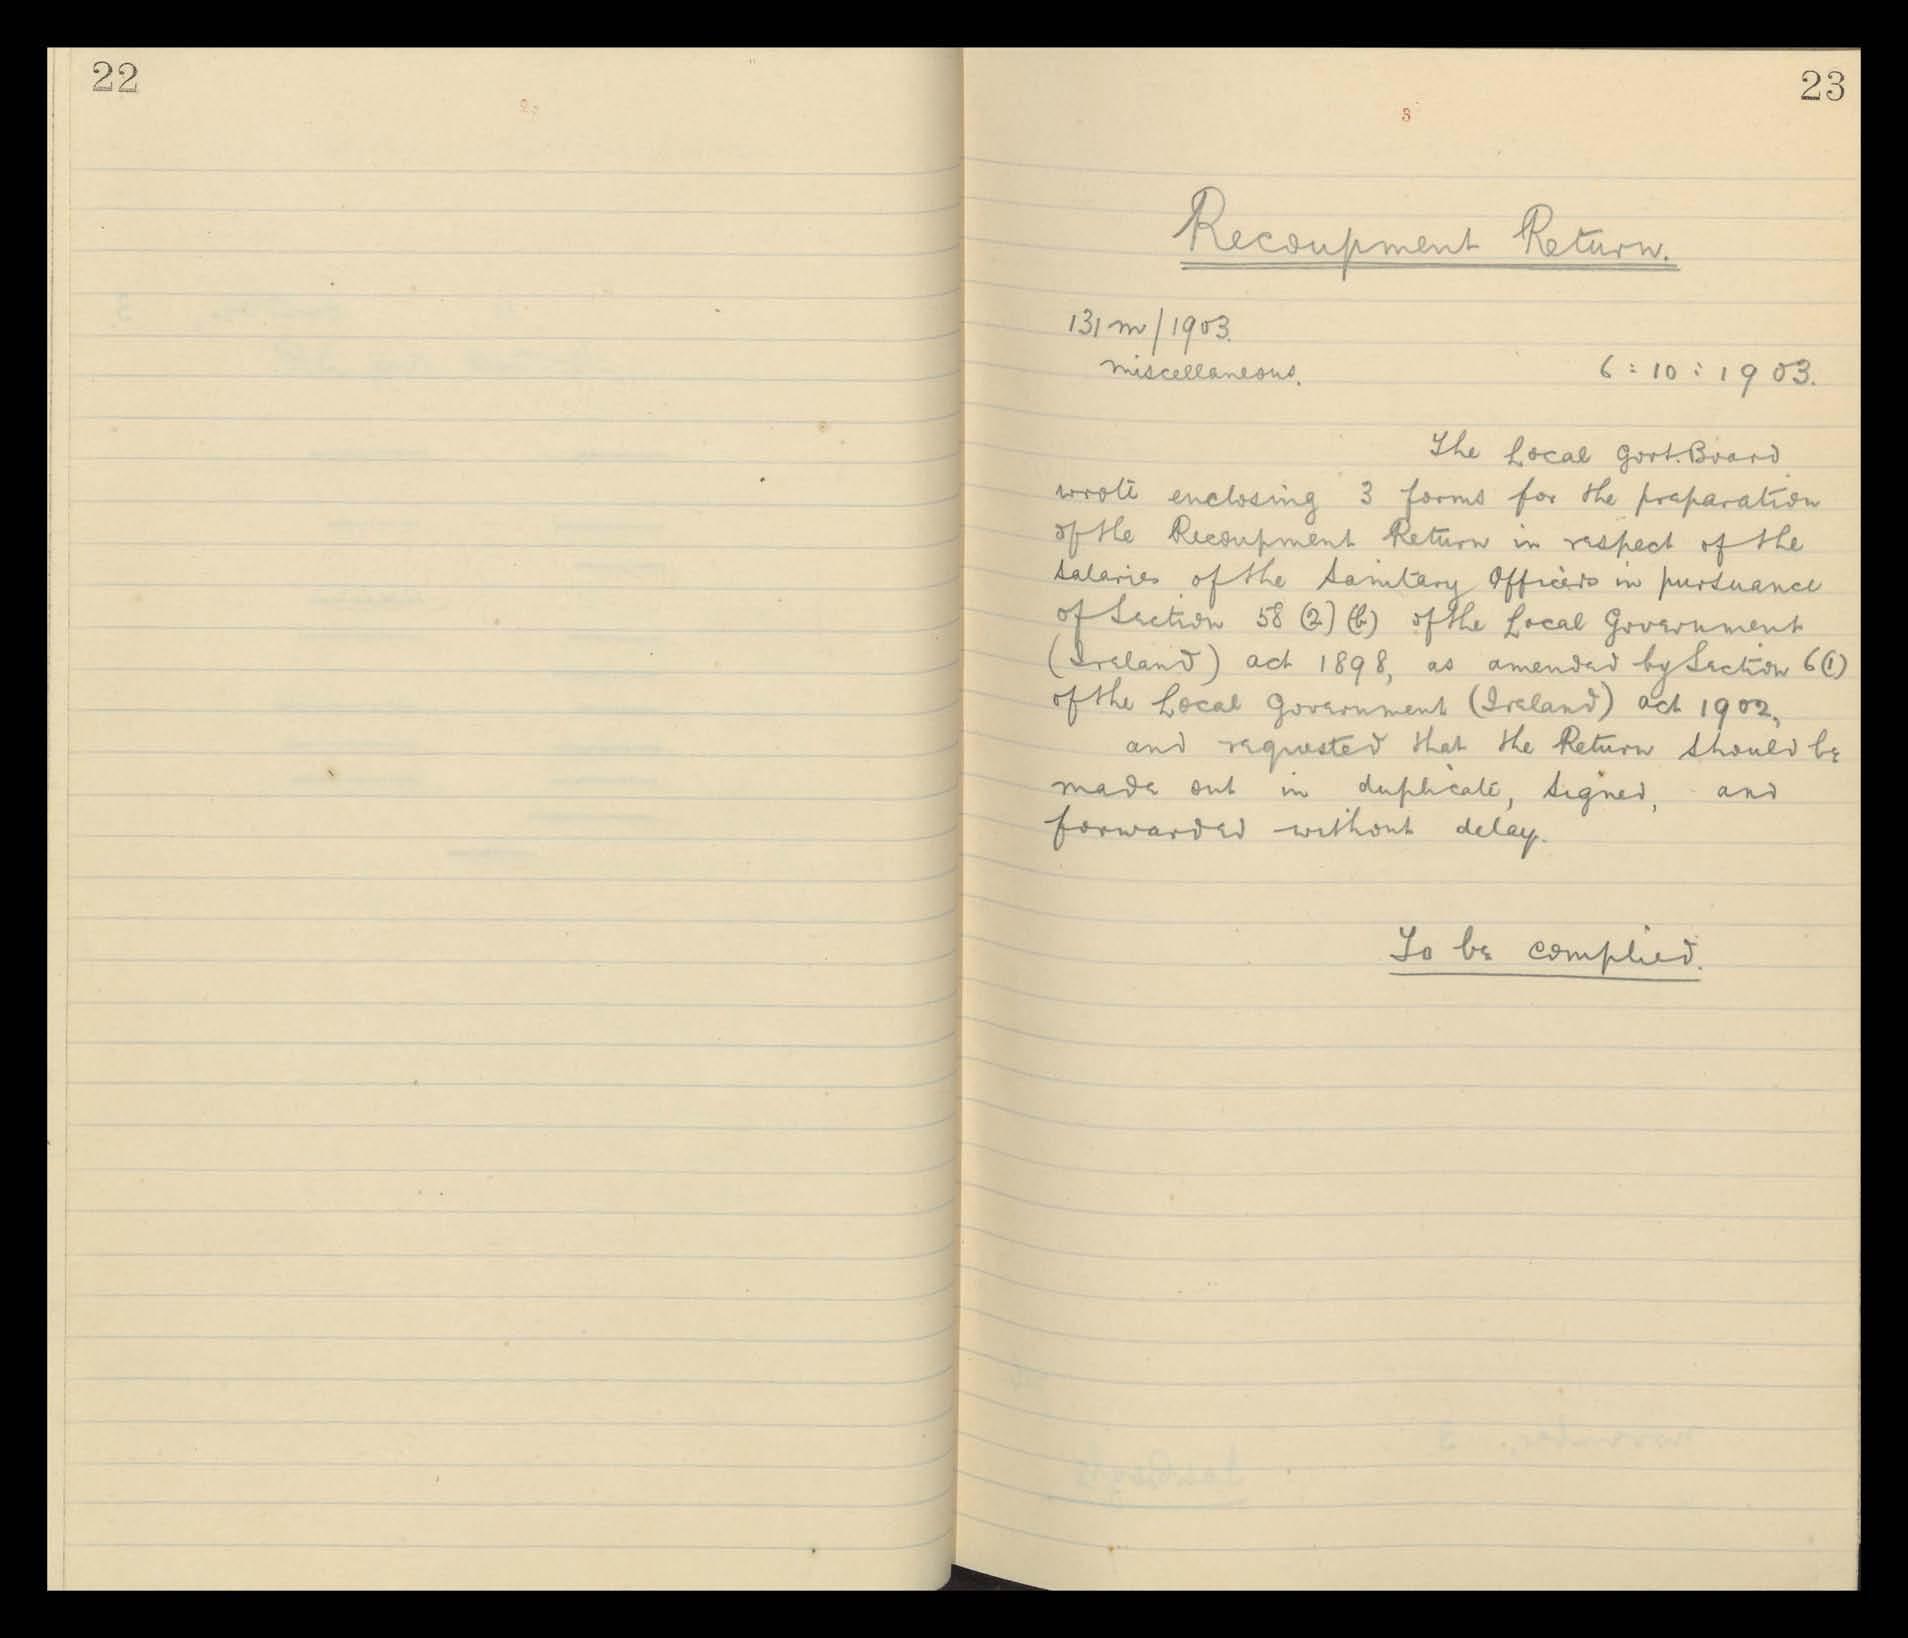 22
23
3
Recoupment Return.
131 m/1903.
miscellaneous.
6 : 10 : 1903.
The Local Govt. Board
wrote enclosing 3 forms for the preparation
of the Recoupment Return in respect of the
salaries of the Sanitary Officers in pursuance
of Section 58 (2) (b) of the Local Government
(Ireland) act 1898, as amended by Section 6 (1)
of the Local Government (Ireland) act 1902,
and requested that the Return should be
made out in duplicate, signed, and
forwarded without delay.
To be complied.